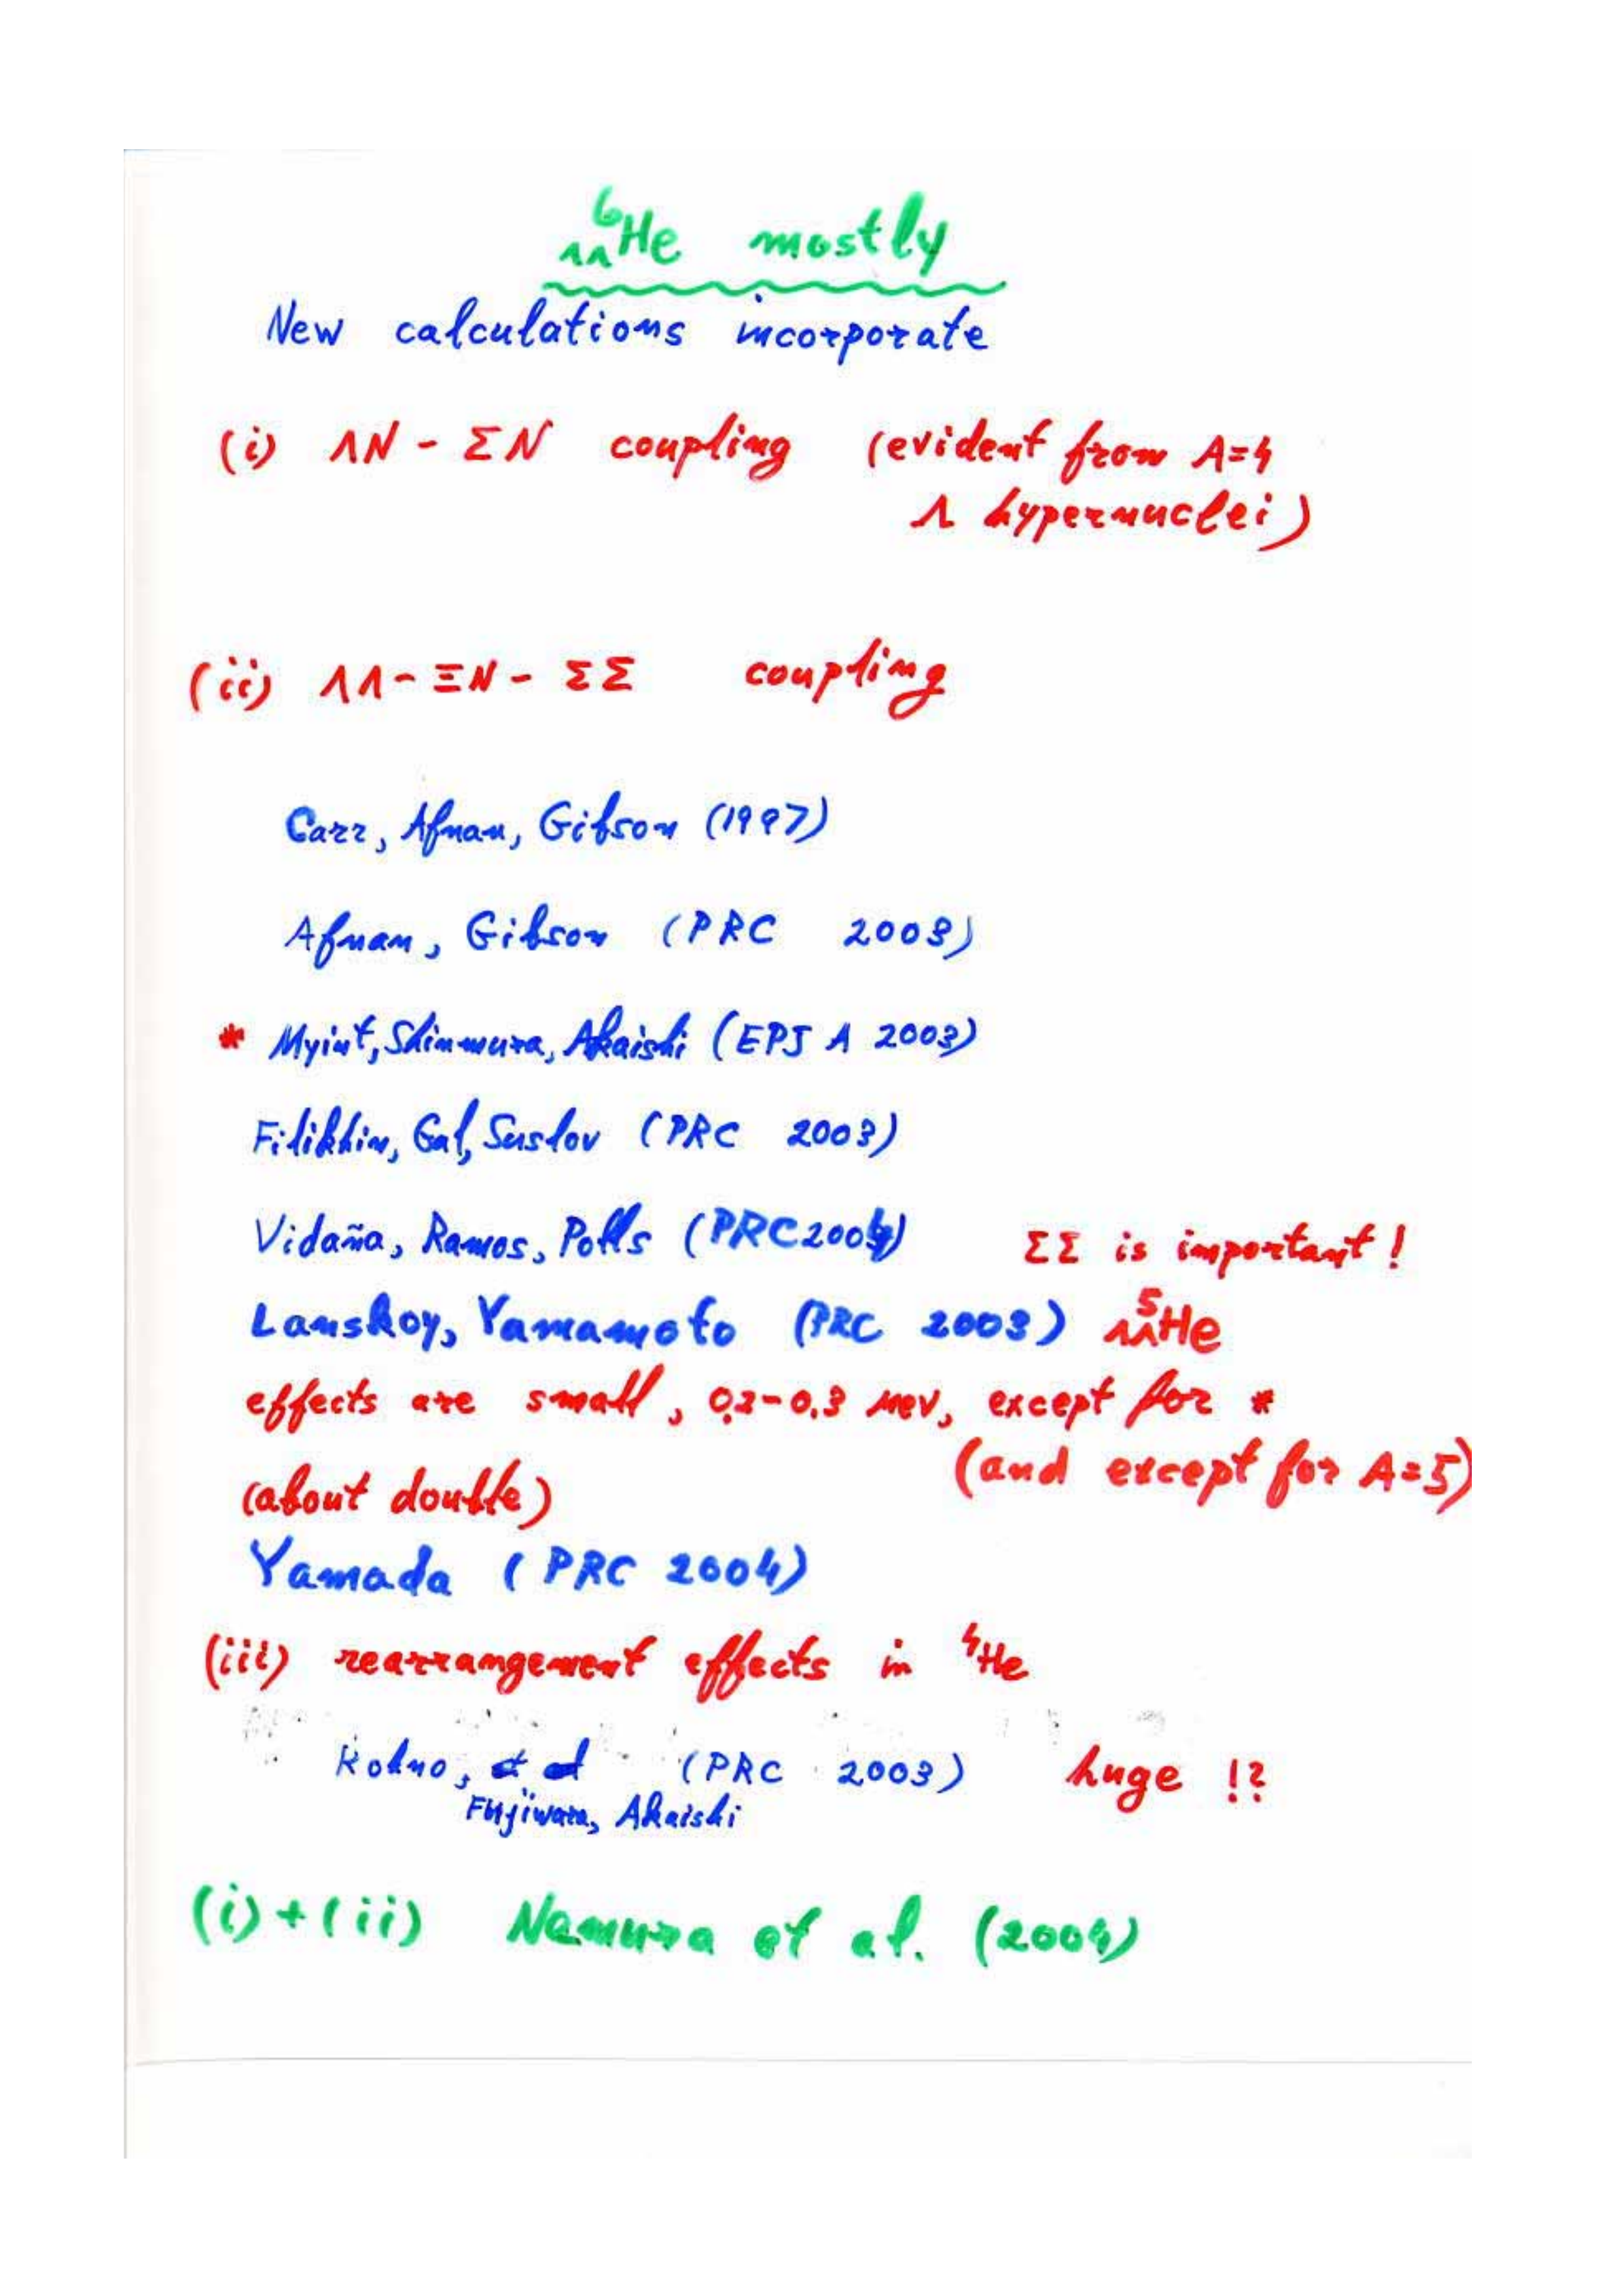 ⁶ΛΛHe mostly
New calculations incorporate
(i) ΛN - ΣN coupling (evident from A=4
Λ hypernuclei)
(ii) ΛΛ - ΞN - ΣΣ coupling
Carr, Afnan, Gibson (1997)
Afnan, Gibson (PRC 2003)
* Myint, Shinmura, Akaishi (EPJ A 2003)
Filikhin, Gal, Suslov (PRC 2003)
Vidaña, Ramos, Polls (PRC 2004) ΣΣ is important!
Lanskoy, Yamamoto (PRC 2003) ⁵ΛΛHe
effects are small, 0.2-0.3 MeV, except for *
(and except for A=5)
(about double)
Yamada (PRC 2004)
(iii) rearrangement effects in ⁴He
Kohno, et al (PRC 2003) huge !?
Fujiwara, Akaishi
(i)+(ii) Nemura et al. (2004)